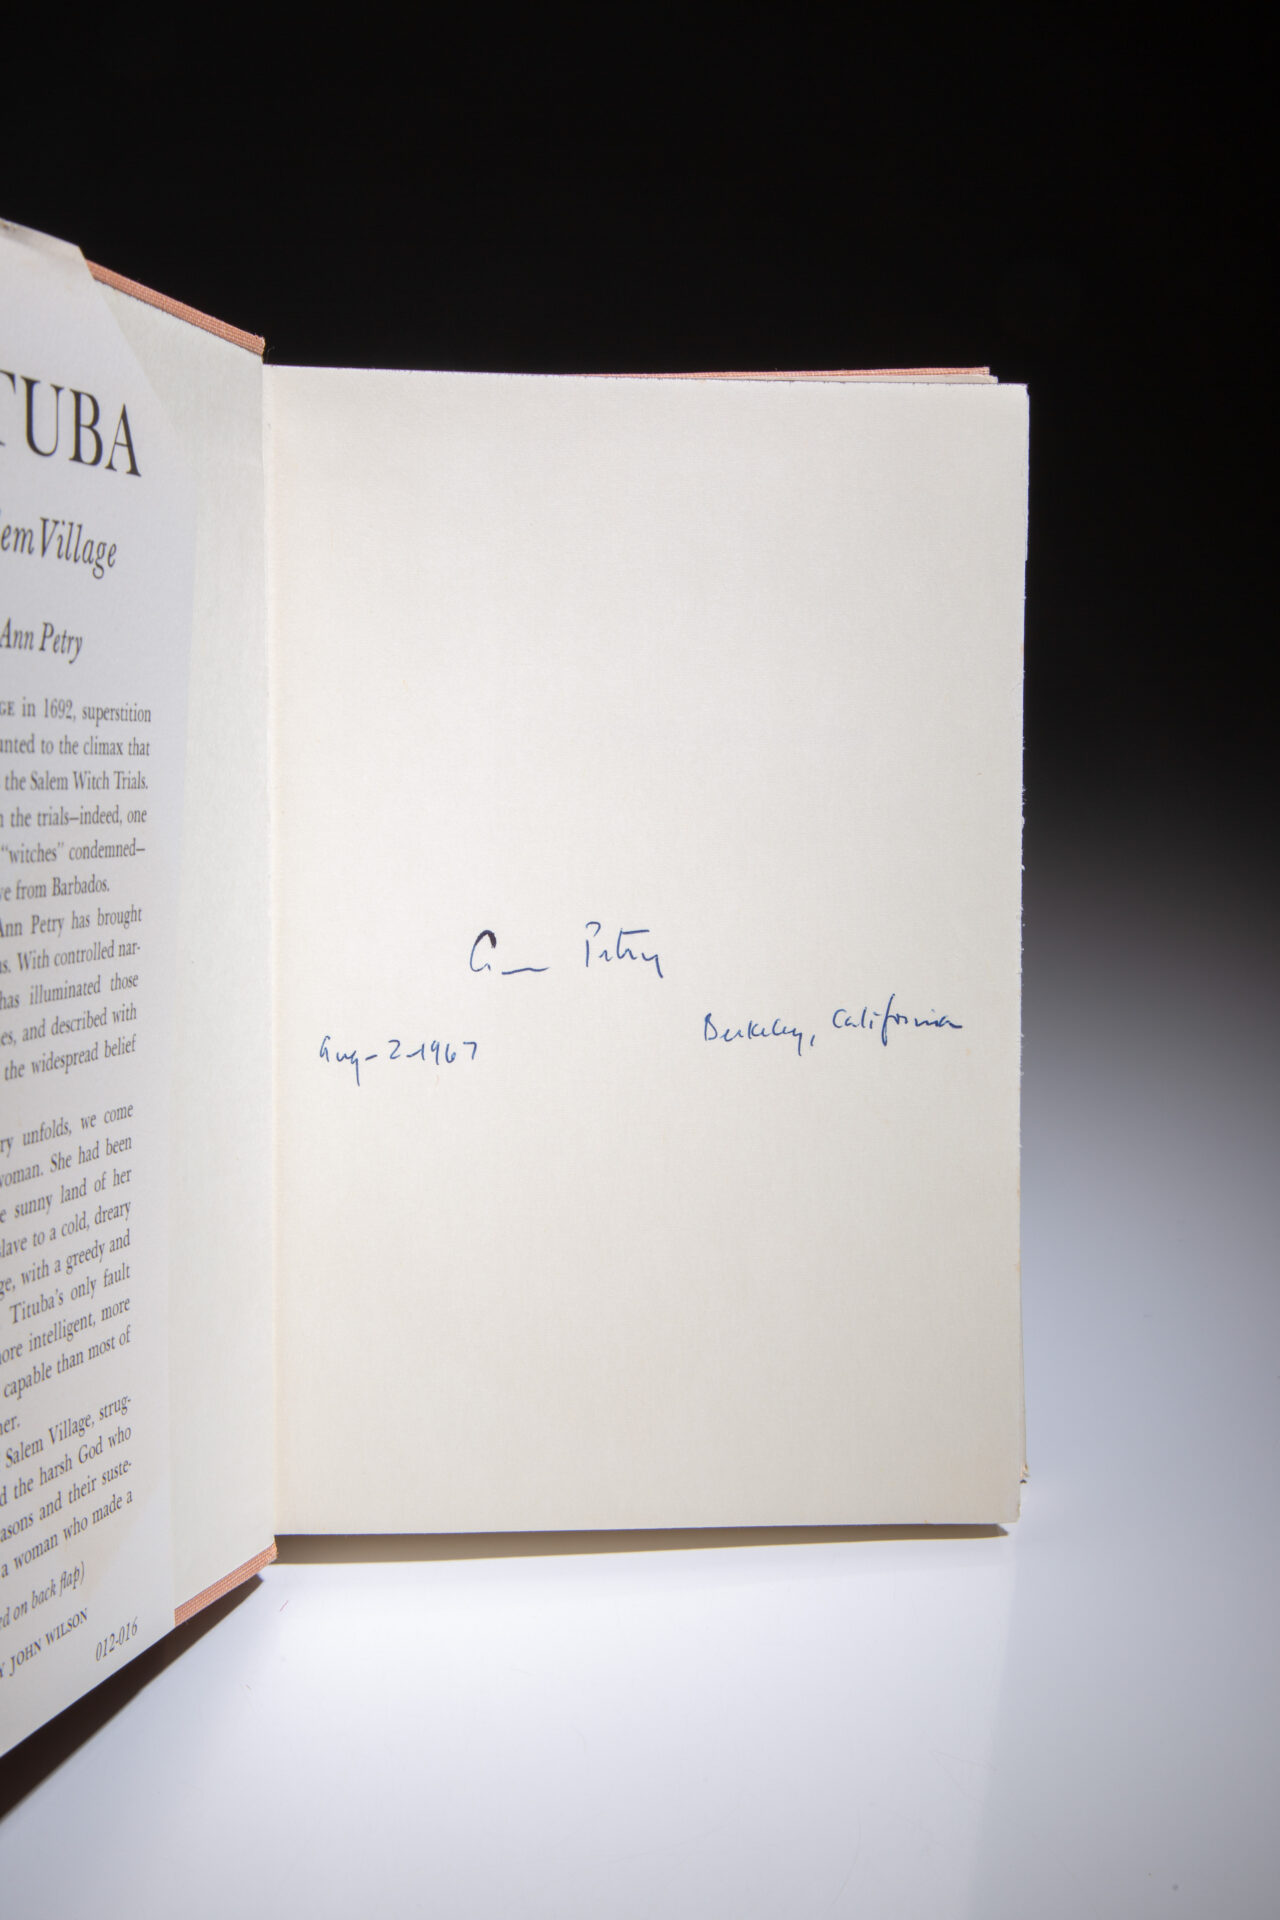 TUBA
lem Village
Ann Petry
GE in 1692, superstition
unted to the climax that
the Salem Witch Trials.
the trials—indeed, one
“witches” condemned—
ve from Barbados.
Ann Petry has brought
s. With controlled nar-
has illuminated those
es, and described with
the widespread belief
ry unfolds, we come
woman. She had been
e sunny land of her
slave to a cold, dreary
ge, with a greedy and
Tituba's only fault
ore intelligent, more
capable than most of
her.
Salem Village, strug-
d the harsh God who
asons and their suste-
a woman who made a
ed on back flap)
Y JOHN WILSON
012-016
Ann Petry
Berkeley, California
Aug-2-1967